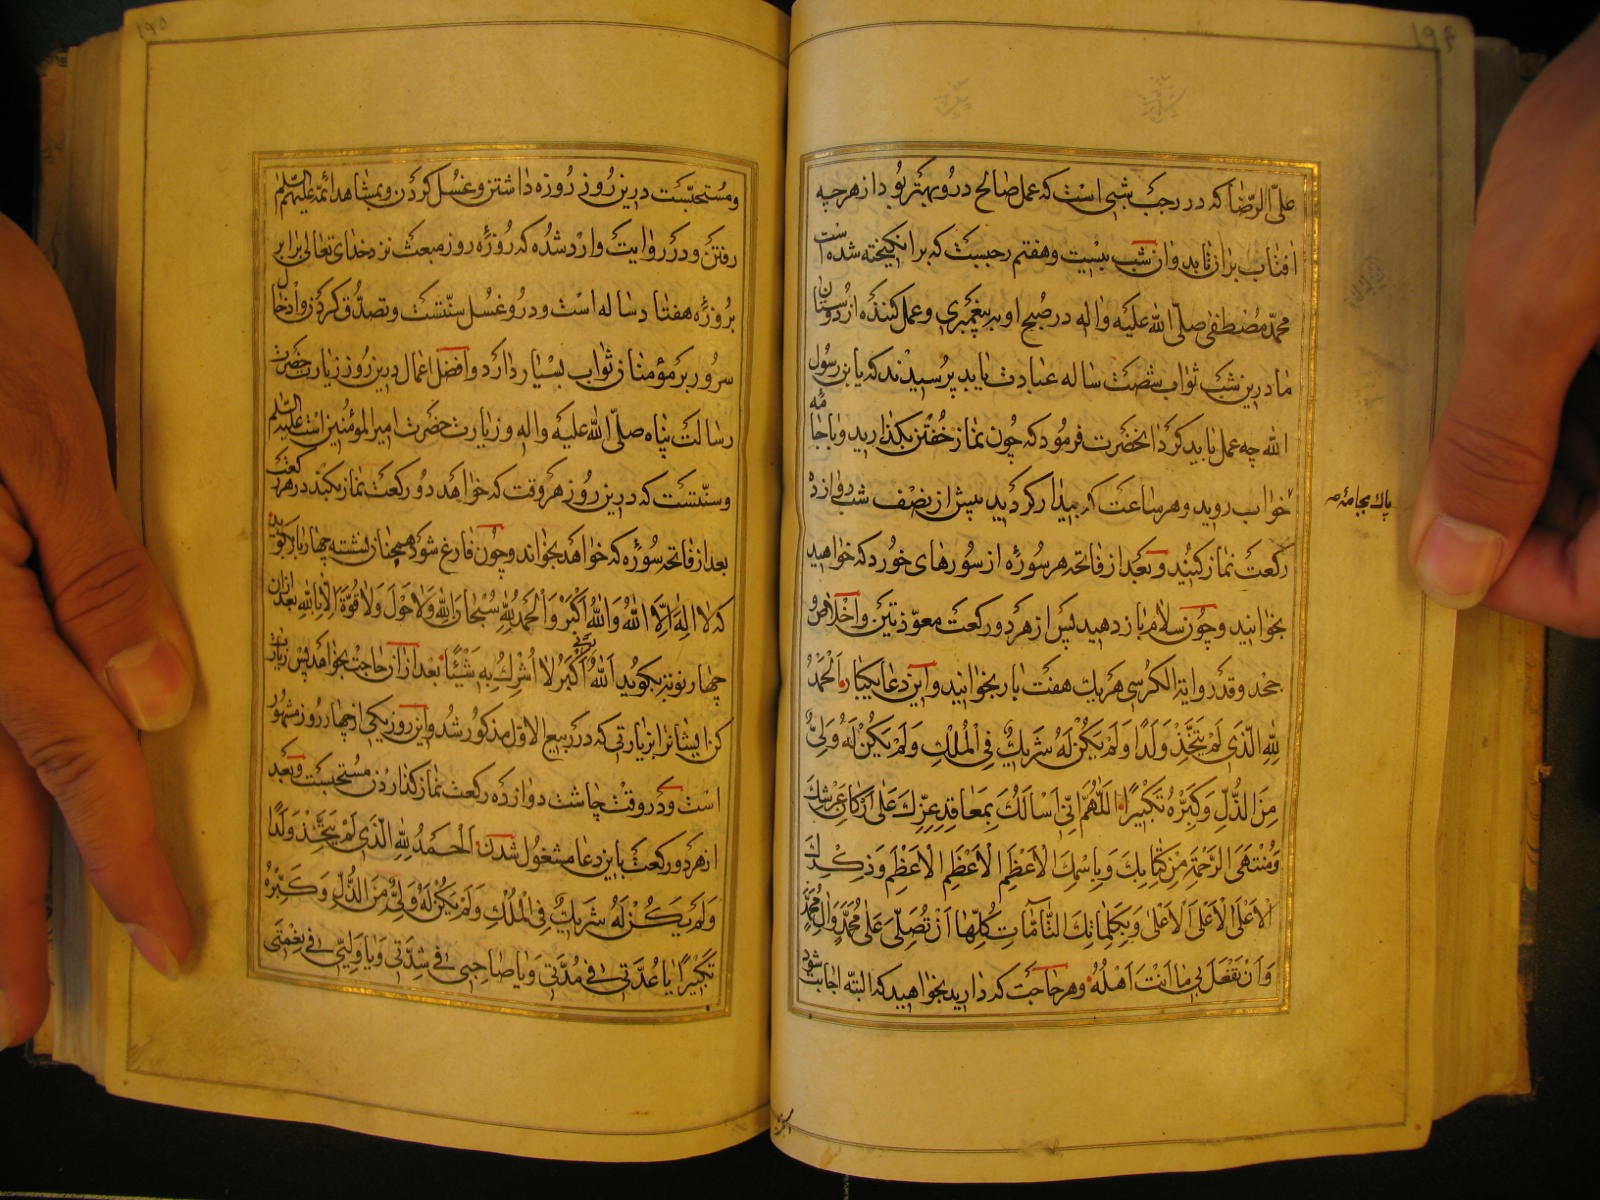 ۱۹۴
علی الرضا که در رجب شبی است که عمل صالح در و بهتر بود از هر چه
افتاب بر ان تابد و ان شب بیست و هفتم رجبست که بر انکیخته شده است
محمد مصطفی صلی الله علیه واله در صبح او به پیغمبری و عمل کننده از دوستان
ما در این شب ثواب شصت ساله عبادت یابد پرسیدند که یا بن رسول
الله چه عمل باید کرد انحضرت فرمود که چون نماز خفتن بکذارید و با جامه
خواب روید و هر ساعت که بیدار کردید پیش از نصف شب دوازده
پاک بجامه
رکعت نماز کنید و بعد از فاتحه هر سوره از سورهای خورد که خواهید
بخوانید و چون سلام باز دهید پس از هر دو رکعت معوذتین و اخلاص و
جحد و قدر و ایة الکرسی هریک هفت بار بخوانید و این دعا یکبار اَلْحَمْدُ
لِلّهِ الَّذی لَمْ یَتَّخِذْ وَلَدًا وَلَمْ یَکُنْ لَهُ شَریکٌ فِی الْمُلْکِ وَلَمْ یَکُنْ لَهُ وَلِیٌّ
مِنَ الذُّلِّ وَکَبِّرْهُ تَکْبیرًا اَللّهُمَّ اِنّی اَسْاَلُکَ بِمَعاقِدِ عِزِّکَ عَلی اَرْکانِ عَرْشِکَ
وَمُنْتَهَی الرَّحْمَةِ مِنْ کِتابِکَ وَبِاسْمِکَ الْاَعْظَمِ الْاَعْظَمِ الْاَعْظَمِ وَذِکْرِکَ
الْاَعْلَی الْاَعْلَی الْاَعْلی وَبِکَلِماتِکَ التّآمّاتِ کُلِّها اَنْ تُصَلِّیَ عَلی مُحَمَّدٍ وَالِ مُحَمَّدٍ
وَاَنْ تَفْعَلَ بی ما اَنْتَ اَهْلُهُ و هر حاجت که دارید بخواهید که البته اجابت شود
۱۹۵
و مستحبست در این روز روزه داشتن و غسل کردن و بمشاهد ائمه علیهم السلم
رفتن و در روایت وارد شده که روزه روز مبعث نزد خدای تعالی برابر
بروزه هفتاد ساله است و در و غسل سنتست و تصدق کردن و ادخال
سرور بر مؤمنان ثواب بسیار دارد و افضل اعمال در این روز زیارت حضرت
رسالت پناه صلی الله علیه واله و زیارت حضرت امیر المؤمنین است علیه السلم
و سنتست که در این روز هر وقت که خواهد دو رکعت نماز بکند در هر رکعت
بعد از فاتحه سوره که خواهد بخواند و چون فارغ شود همچنان نشسته چهار بار بکوید
که لا اِلهَ اِلَّا اللهُ وَاللهُ اَکْبَرُ وَالْحَمْدُ لِلّهِ سُبْحانَ اللهِ وَلا حَوْلَ وَلا قُوَّةَ اِلّا بِاللهِ بعد از ان
چهار نوبه بکوید اَللهُ اَکْبَرُ لا اُشْرِکُ بِه شَیْئًا بعد از ان حاجت بخواهد پس زیارت
کن ایشانرا بزیارتی که در ربیع الاول مذکور شد و این روز یکی از چهار روز مشهور
است و در وقت چاشت دوازده رکعت نماز کذاردن مستحبست و بعد
از هر دو رکعت باین دعا مشغول شدن اَلْحَمْدُ لِلّهِ الَّذی لَمْ یَتَّخِذْ وَلَدًا
وَلَمْ یَکُنْ لَهُ شَریکٌ فِی الْمُلْکِ وَلَمْ یَکُنْ لَهُ وَلِیٌّ مِنَ الذُّلِّ وَکَبِّرْهُ
تَکْبیرًا یا عُدَّتی فی مُدَّتی وَیا صاحِبی فی شِدَّتی وَیا وَلِیّی فی نِعْمَتی